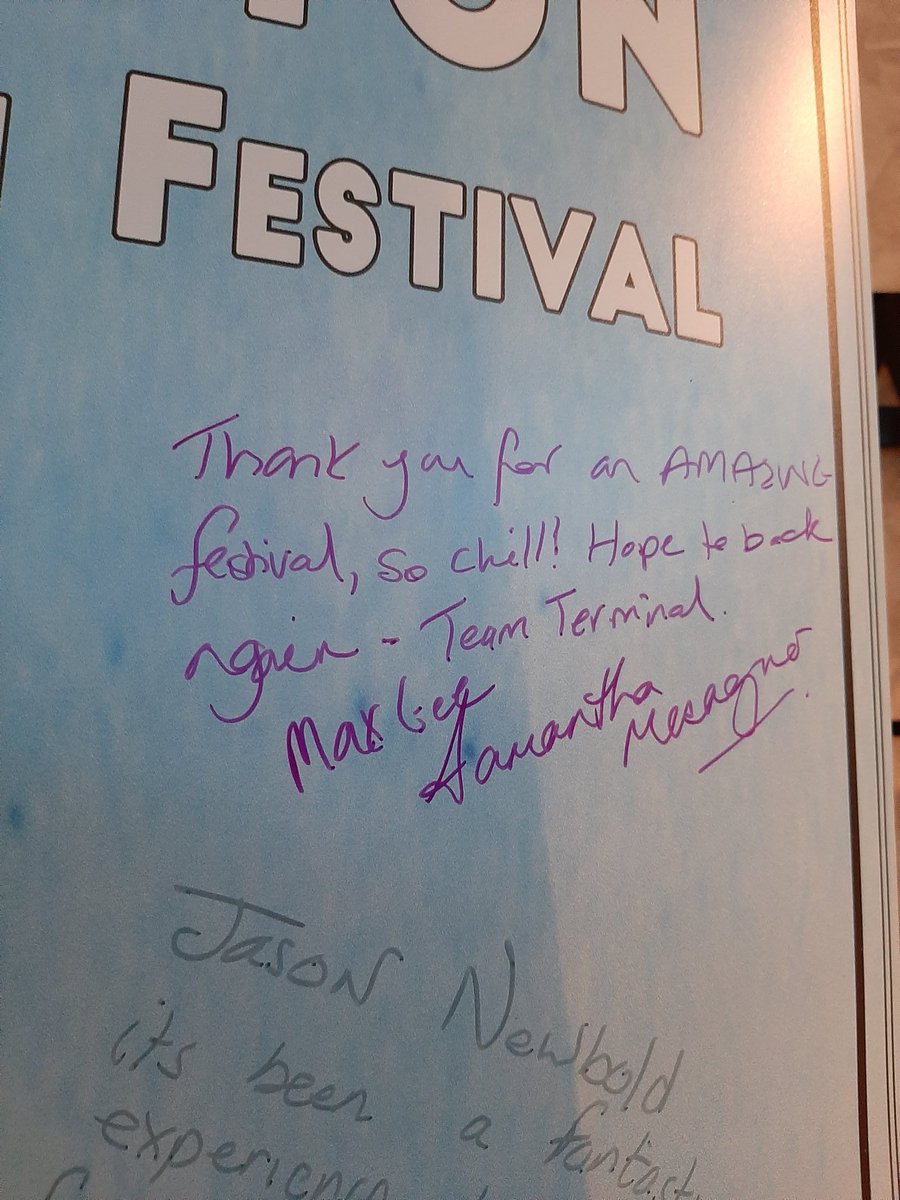 ON
FESTIVAL
Thank you for an AMAZING
festival, so chill! Hope to back
again - Team Terminal.
Max Samantha
Jason Newbold
its been a fantast
experienc